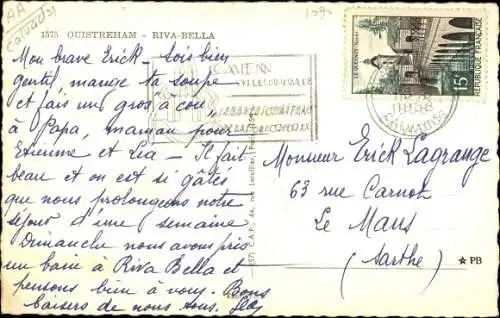 AA
Calvados
1575 OUISTREHAM - RIVA-BELLA
Mon brave Erick - Sois bien
gentil, mange ta soupe
et fais un gros à cou,
à Papa, maman pour
Etienne et Lia - Il fait
beau et on est si gâtés
que nous prolongeons notre
séjour d'une semaine
Dimanche nous avons pris
un bain à Riva Bella et
pensons bien à vous. Bons
baisers de nous tous.
CAEN
LE QUESNOY
15F
REPUBLIQUE FRANÇAISE
Monsieur Erick Lagrange
63 rue Carnot
Le Mans
(Sarthe)
★ PB